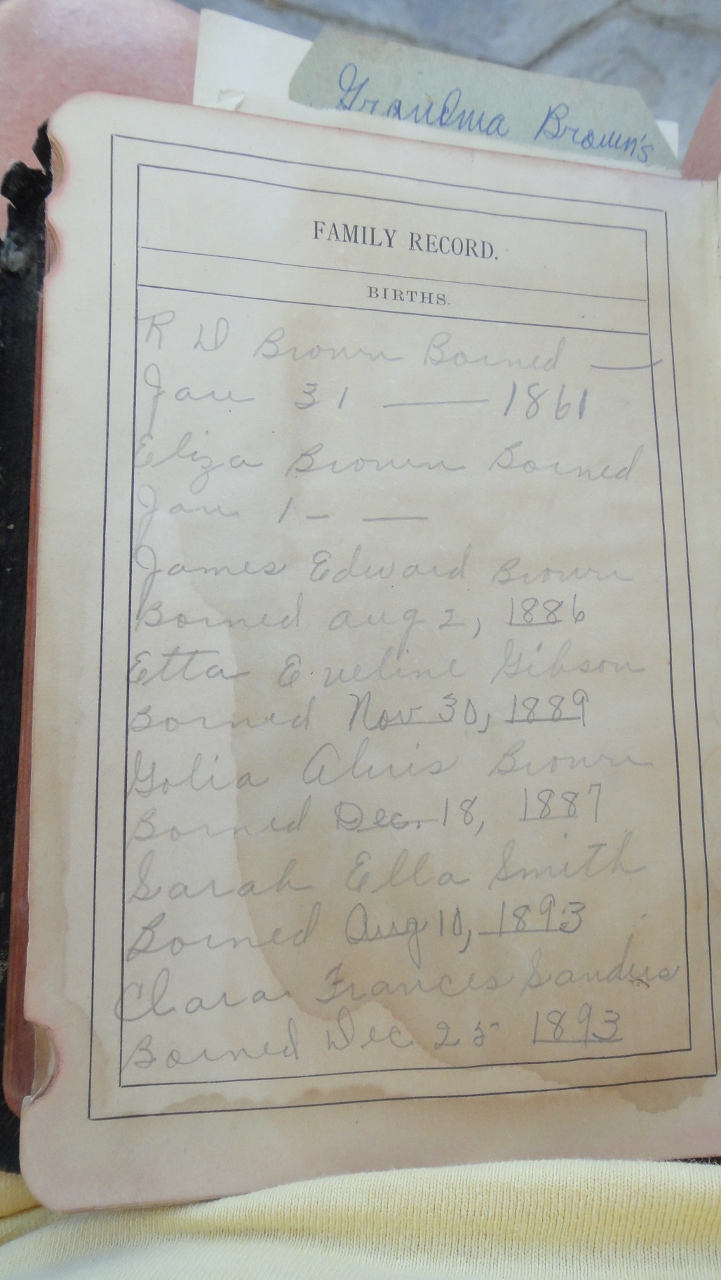 Grandma Brown's
FAMILY RECORD.
BIRTHS.
R D Brown Borned —
Jan 31 — 1861
Eliza Brown Borned
Jan 1 – —
James Edward Brown
Borned Aug 2, 1886
Etta Eveline Gibson
Borned Nov 30, 1889
Golia Alvis Brown
Borned Dec. 18, 1887
Sarah Ella Smith
Borned Aug 10, 1893
Clara Frances Sanders
Borned Dec 25 1893